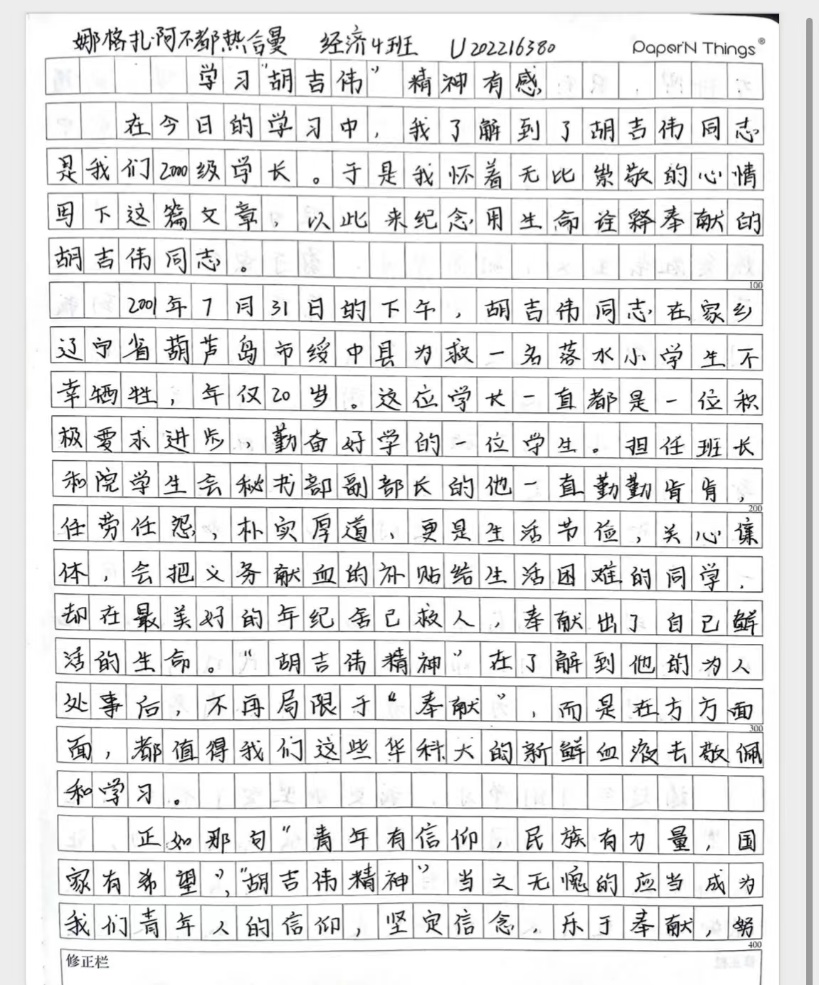 娜格扎·阿不都热合曼 经济4班 U202216380
Paper'N Things®
学习"胡吉伟"精神有感
在今日的学习中，我了解到了胡吉伟同志
是我们2000级学长。于是我怀着无比崇敬的心情
写下这篇文章，以此来纪念用生命诠释奉献的
胡吉伟同志。
100
2001年7月31日的下午，胡吉伟同志在家乡
辽宁省葫芦岛市绥中县为救一名落水小学生不
幸牺牲，年仅20岁。这位学长一直都是一位积
极要求进步、勤奋好学的一位学生。担任班长
和院学生会秘书部副部长的他一直勤勤肯肯，
200
任劳任怨，朴实厚道，更是生活节俭，关心集
体，会把义务献血的补贴给生活困难的同学，
却在最美好的年纪舍己救人，奉献出了自己鲜
活的生命。"胡吉伟精神"在了解到他的为人
处事后，不再局限于"奉献"，而是在方方面
300
面，都值得我们这些华科大的新鲜血液去敬佩
和学习。
正如那句"青年有信仰，民族有力量，国
家有希望"，"胡吉伟精神"当之无愧的应当成为
我们青年人的信仰，坚定信念，乐于奉献，努
400
修正栏